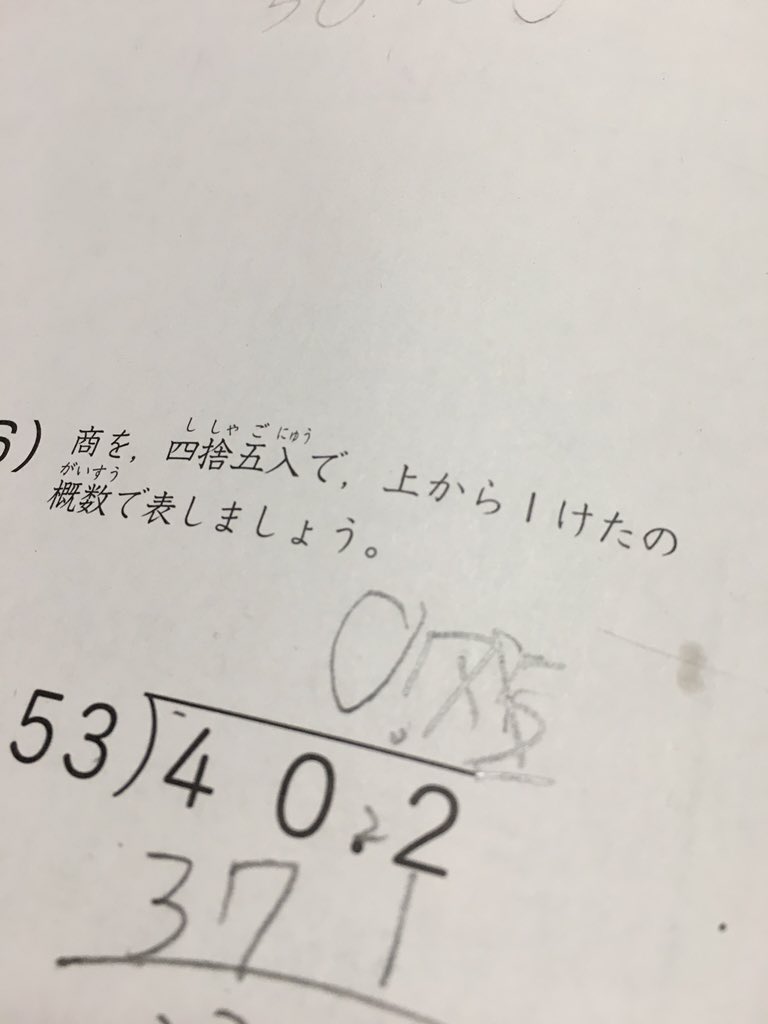 6) 商を，四捨五入で，上から1けたの
ししゃごにゅう
がいすう
概数で表しましょう。
0.7
53)40.2
371